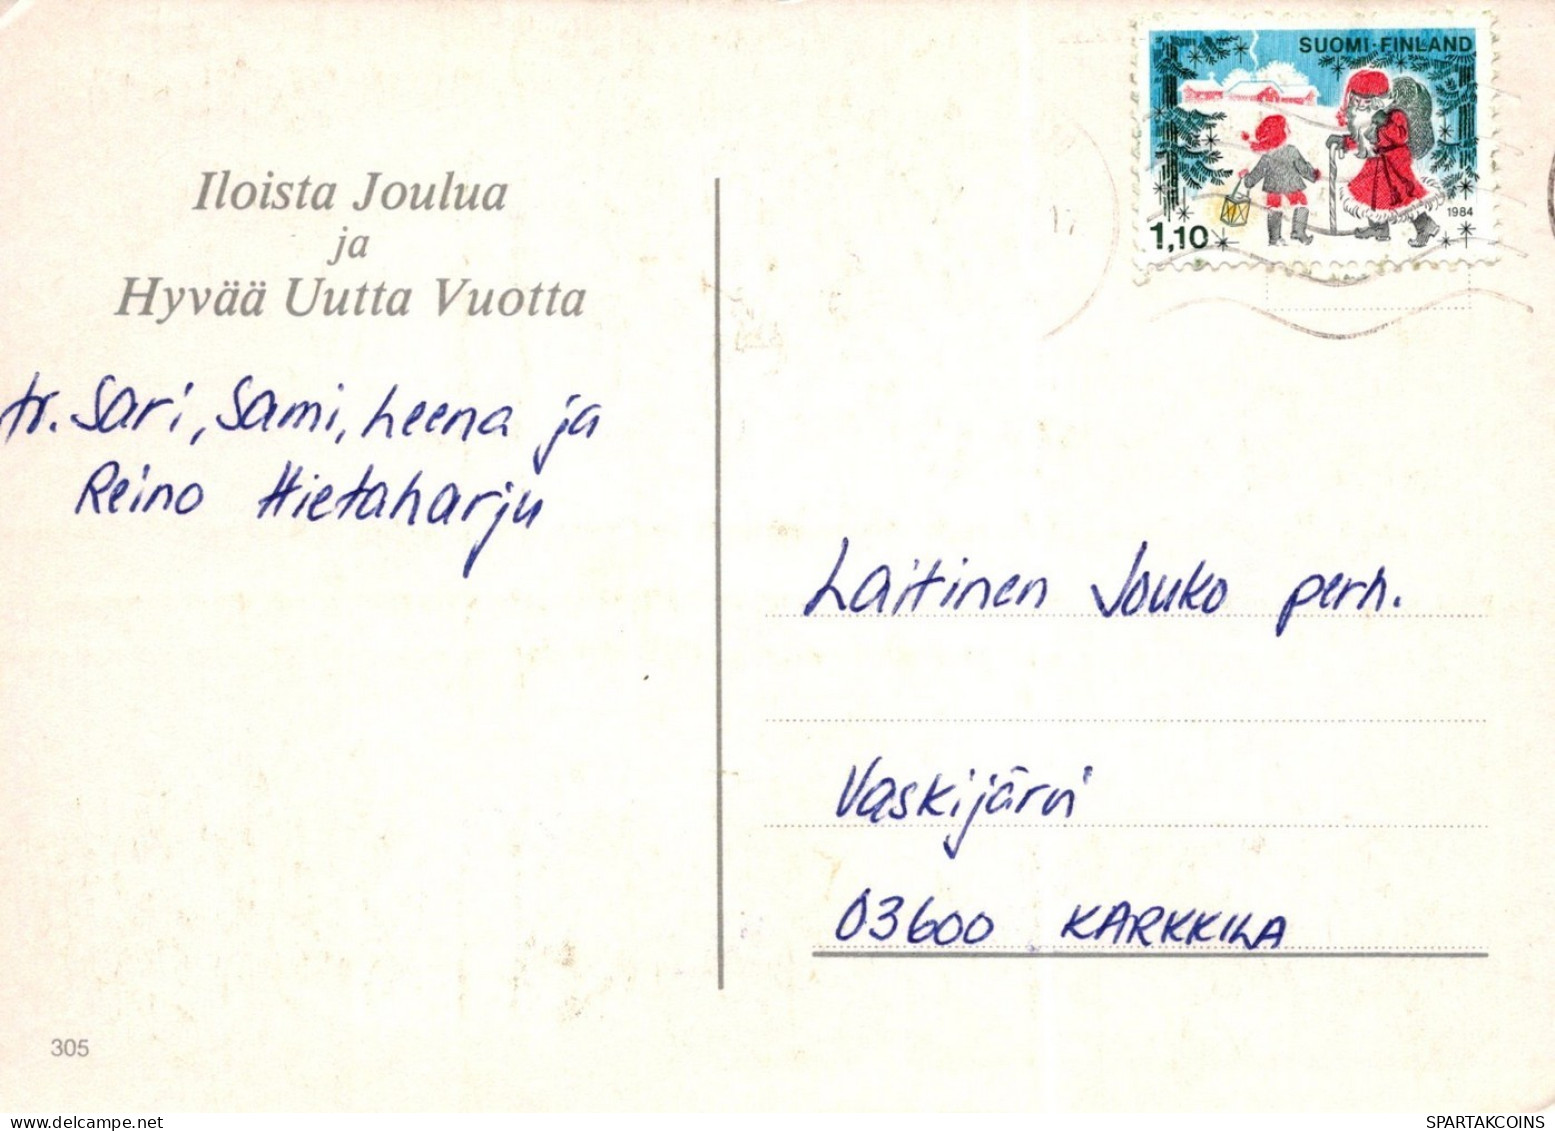 SUOMI·FINLAND
1984
1,10
17
Iloista Joulua
ja
Hyvää Uutta Vuotta
tr. Sari, Sami, Leena ja
Reino Hietaharju
Laitinen Jouko perh.
Vaskijärvi
03600 KARKKILA
305
SPARTAKCOINS